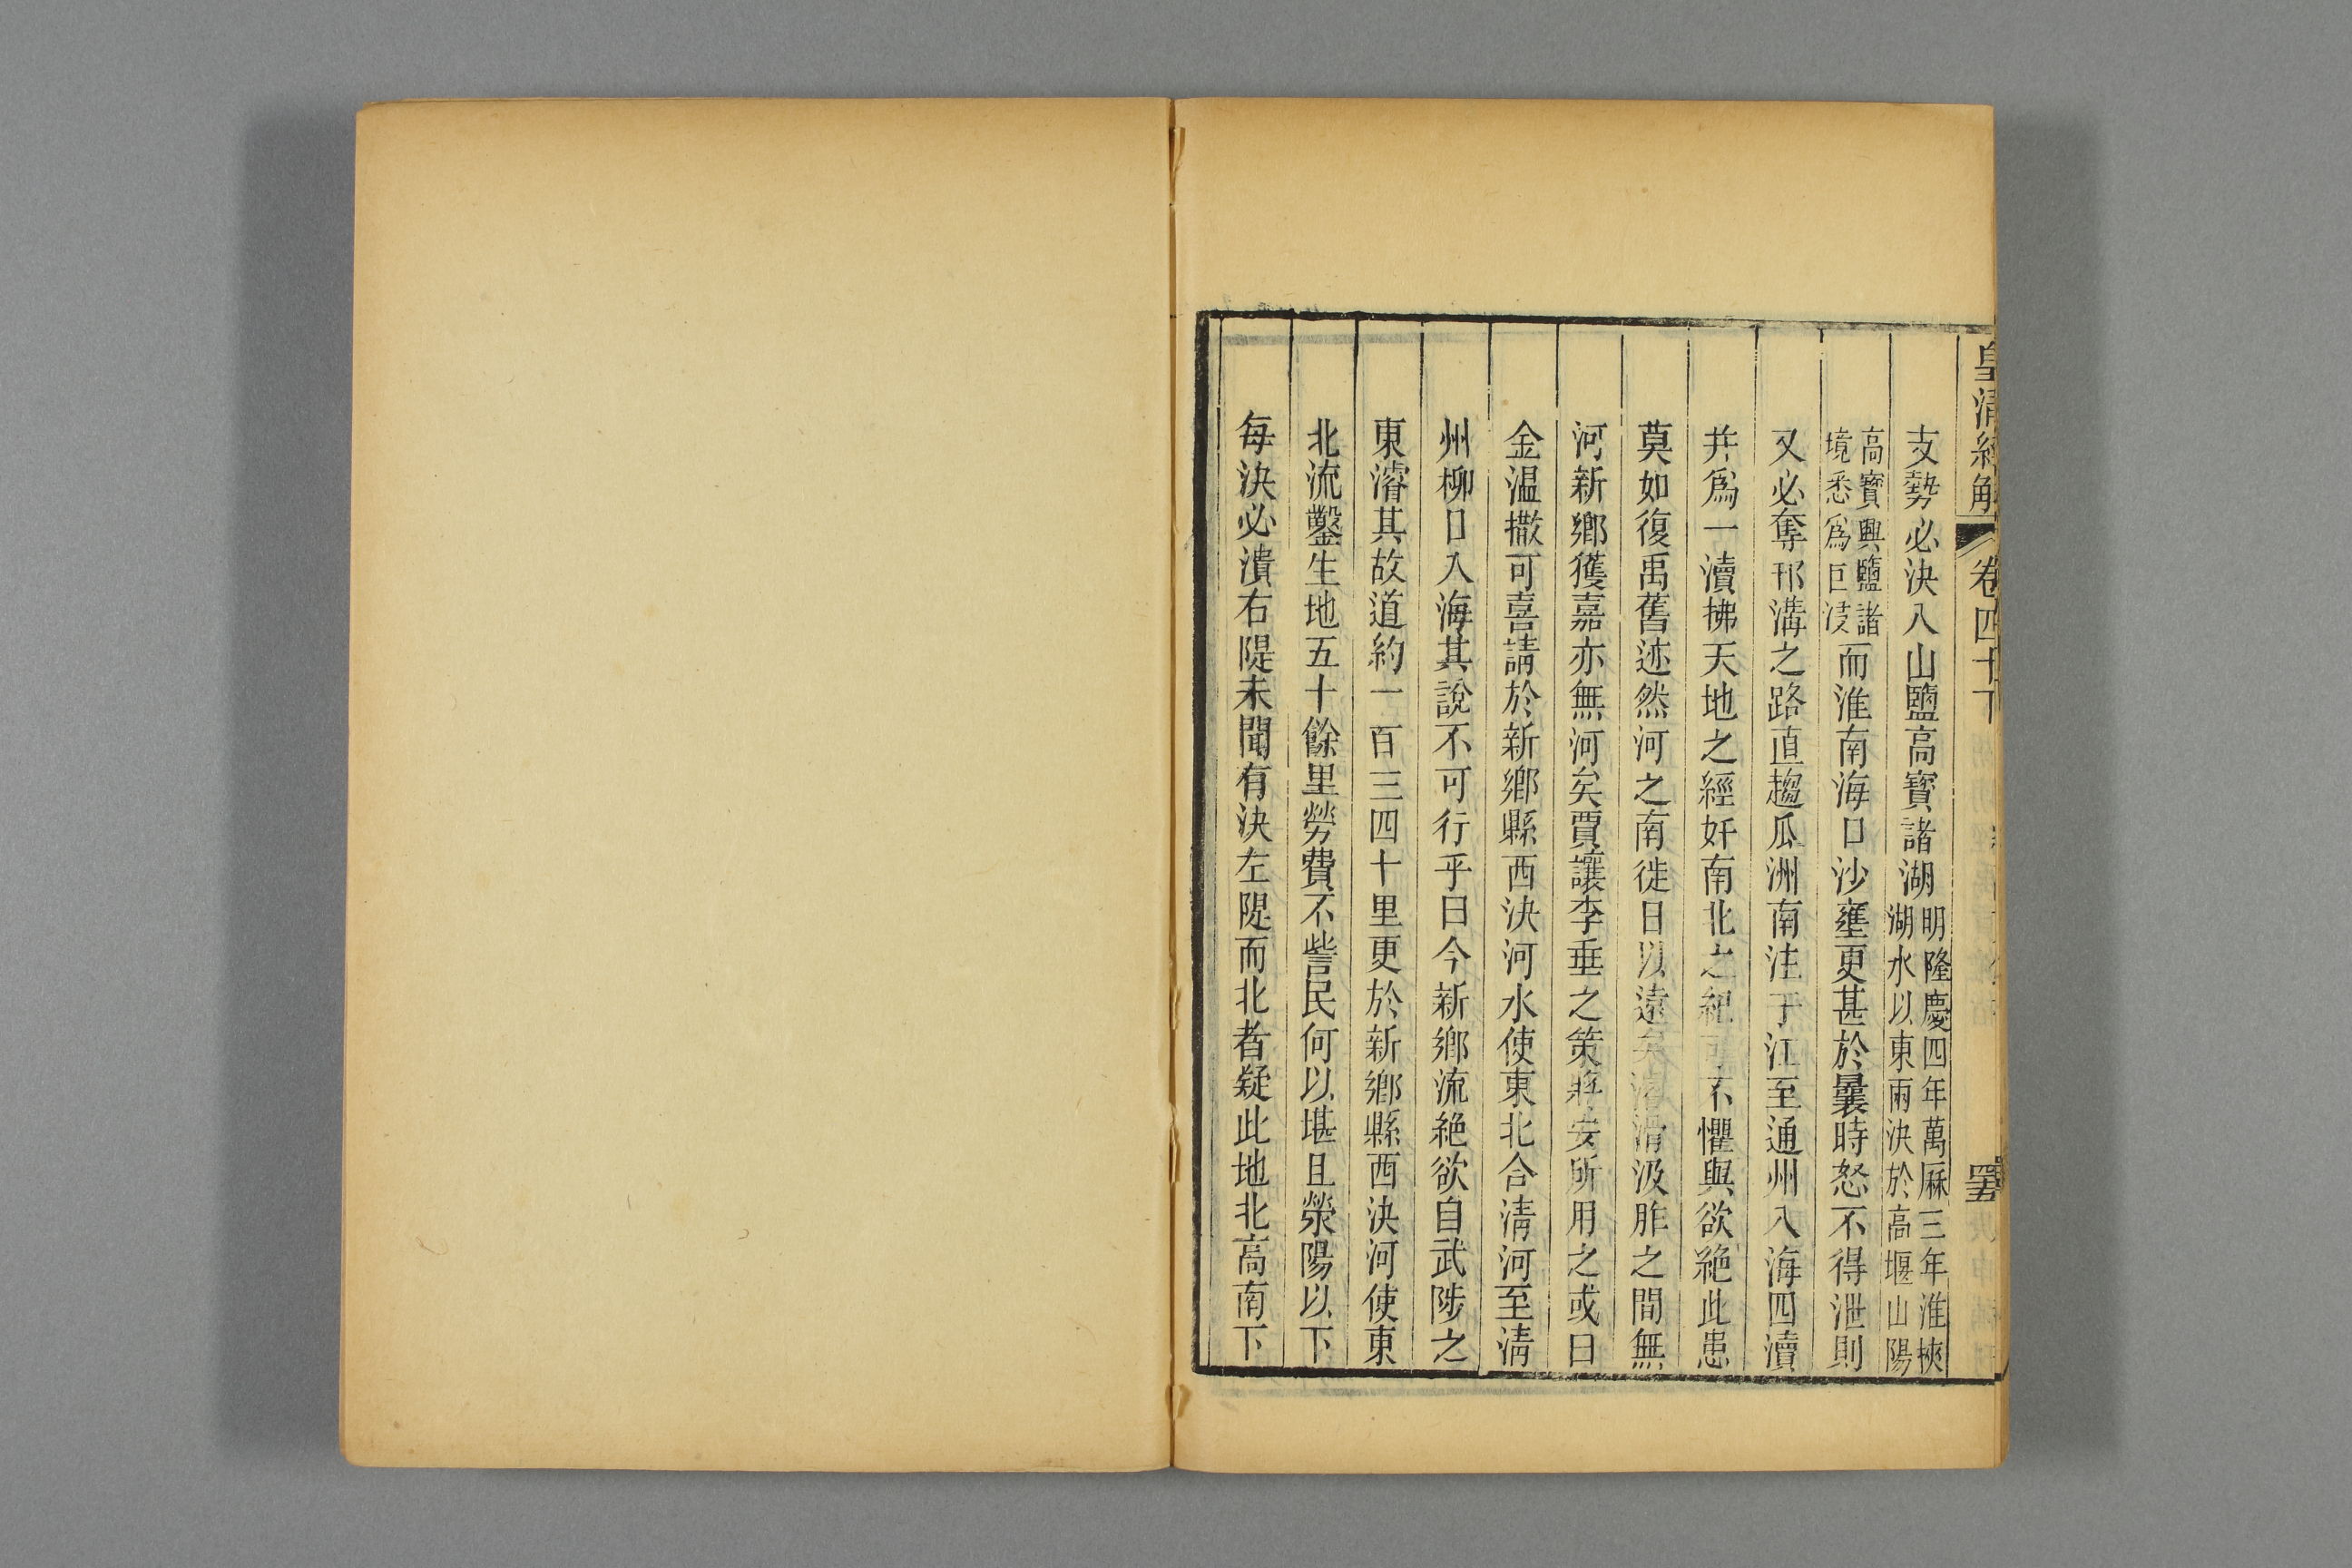 皇清經解 卷四十下 罣
支勢必決入山鹽高寶諸湖明隆慶四年萬厤三年淮挾湖水以東兩決於高堰山陽
高寶興鹽諸境悉爲巨浸而淮南海口沙壅更甚於曩時怒不得泄則
又必奪邗溝之路直趨瓜洲南注于江至通州入海四瀆
幷爲一瀆拂天地之經奸南北之紀可不懼與欲絶此患
莫如復禹舊迹然河之南徙日以遠矣濬滑汲胙之間無
河新鄉獲嘉亦無河矣賈讓李垂之策將安所用之或曰
金温撒可喜請於新鄉縣西決河水使東北合清河至清
州柳口入海其說不可行乎曰今新鄉流絶欲自武陟之
東濬其故道約一百三四十里更於新鄉縣西決河使東
北流鑿生地五十餘里勞費不訾民何以堪且滎陽以下
每決必潰右隄未聞有決左隄而北者疑此地北高南下